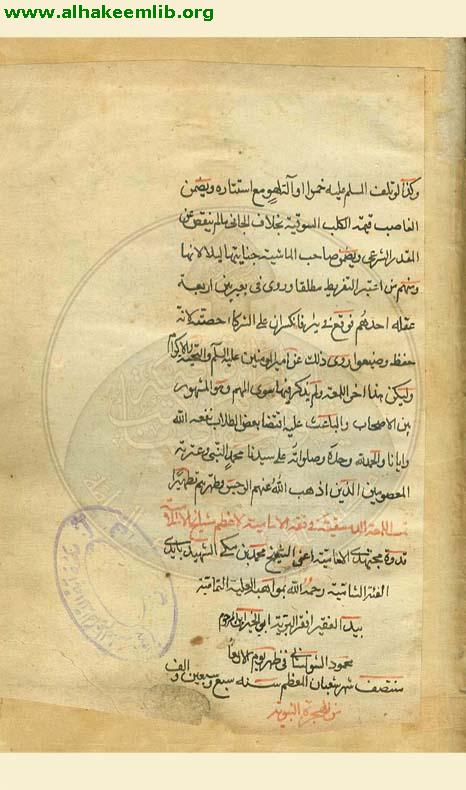 www.alhakeemlib.org
وكذا لو تلف المسلم عليه خمرا او آلة لهو مع استتاره ويضمن
الغاصب قيمة الكلب السوقية بخلاف الجاني مالم ينقص عن
المقدر الشرعي ويضمن صاحب الماشية جنايتها ليلا لا نهارا
ومنهم من اعتبر التفريط مطلقا وروى في بعير بين اربعة
عقله احدهم فوقع في بئر فانكسر ان على الشركاء حصته لانه
حفظ وضيعوا روى ذلك عن امير المومنين عليه السلم والتحية والاكرام
وليكن هذا اخر اللمعة ولم يذكر فيها سوى المهم وهو المشهور
بين الاصحاب والباعث عليه اقتضاء بعض الطلاب نفعه الله
وايانا والحمد لله وحده وصلواته على سيدنا محمد النبى وعترته
المعصومين الذين اذهب الله عنهم الرجس وطهرهم تطهيرا
تمت اللمعة الدمشقية في فقه الامامية لاعظم مشايخ
قدوة مجتهدى الامامية اعنى الشيخ محمد بن مكي الشهيد بايدى
الفئة رحمه الله بمواهب
بيد الفقير افقر البرية ابن المرحوم
محمود في ظهر يوم الاربعا
منتصف شهر شعبان المعظم سنه سبع وسبعين والف
من الهجرة النبوية